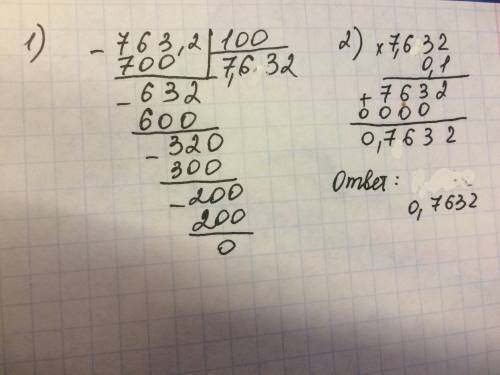 1) - 763,2 | 100
700 7,632
- 632
600
- 320
300
- 200
200
0
2) x 7,632
0,1
+ 7632
0000
0,7632
Ответ:
0,7632